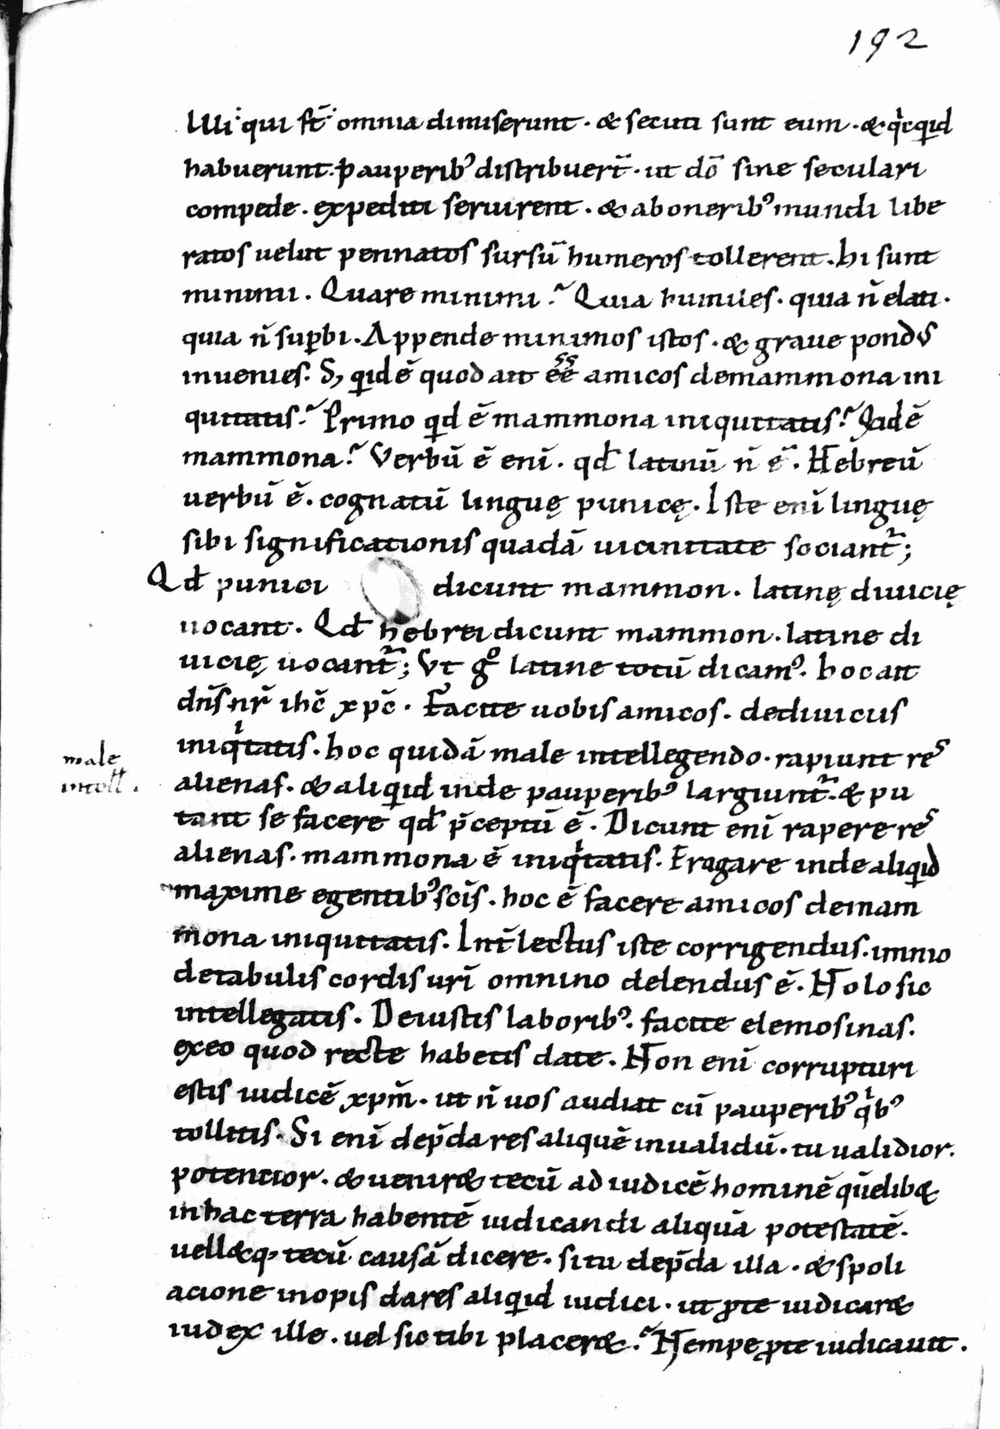 192
Illi qui st̄ omnia dimiserunt · & secuti sunt eum · & qͥcq̨id
habuerunt · pauperibꝰ distribuer̄t · ut dō sine seculari
compede · expediti seruirent · & aboneribꝰ mundi libe
ratos uelut pennatos sursū humeros tollerent · hi sunt
minimi · Quare minimi? Quia humiles · quia n̄ elati ·
quia n̄ suꝑbi · Appende minimos istos · & graue pondꝰ
inuenies · S; q̨id ē quod ait ēē amicos demammona ini
quitatis? Primo q̨d ē mammona iniquitatis? Q̨id ē
mammona? Verbū ē enī · qđ latinū n̄ ē · Hebreū
uerbū ē · cognatū linguę punicę · Iste enī linguę
sibi significationis quadā uicinitate sociant̄;
Qđ punici dicunt mammon · latinę diuicię
uocant · Qđ hebrei dicunt mammon · latine di
uicię uocant̄; Vt gͦ latine totū dicamꝰ · hoc ait
dn̄s nr̄ ihc̄ xpc̄ · Facite uobis amicos · dediuiciis
iniqͥtatis · hoc quidā male intellegendo · rapiunt res
alienas · & aliq̨id inde pauperibꝰ largiunt̄ · & pu
tant se facere qđ p̄ceptū ē · Dicunt enī rapere res
alienas · mammona ē iniqͥtatis · Erogare inde aliq̨id
maxime egentibꝰ scīs · hoc ē facere amicos demam
mona iniquitatis · Int̄lectus iste corrigendus · immo
detabulis cordis urī omnino delendus ē · Nolo sic
intellegatis · Deiustis laboribꝰ · facite elemosinas ·
exeo quod recte habetis date · Non enī corrupturi
estis iudicē xpm̄ · ut n̄ uos audiat cū pauperibꝰ qͥbꝰ
tollitis · Si enī dep̄dares aliquē inualidū · tu ualidior ·
potentior · & uenir& tecū ad iudicē hominē quēlib&
inhac terra habentē iudicandi aliquā potestatē ·
uell&q; tecū causā dicere · si tu dep̄da illa · & spoli
acione inopis dares aliq̨id iudici · ut ꝓte iudicar&
iudex ille · uel sic tibi placer&? Nempe ꝓte iudicauit ·
male
intell̄ ·